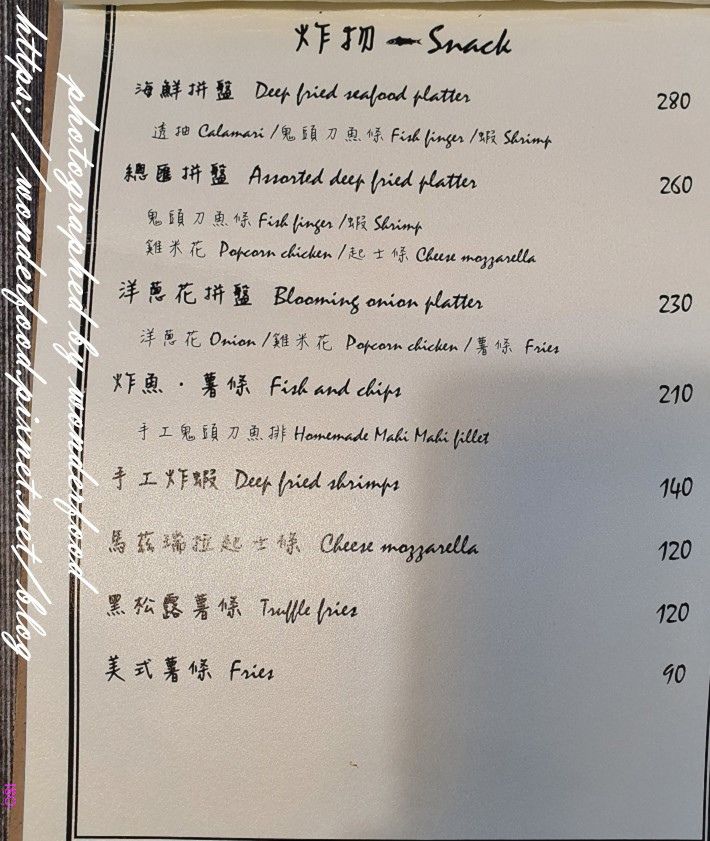 炸物 Snack
海鮮拼盤 Deep fried seafood platter 280
透抽 Calamari /鬼頭刀魚條 Fish finger /蝦 Shrimp
總匯拼盤 Assorted deep fried platter 260
鬼頭刀魚條 Fish finger /蝦 Shrimp
雞米花 Popcorn chicken /起士條 Cheese mozzarella
洋蔥花拼盤 Blooming onion platter 230
洋蔥花 Onion /雞米花 Popcorn chicken /薯條 Fries
炸魚·薯條 Fish and chips 210
手工鬼頭刀魚排 Homemade Mahi Mahi fillet
手工炸蝦 Deep fried shrimps 140
馬茲瑞拉起士條 Cheese mozzarella 120
黑松露薯條 Truffle fries 120
美式薯條 Fries 90
photographed by wonderfood
https://wonderfood.pixnet.net/blog